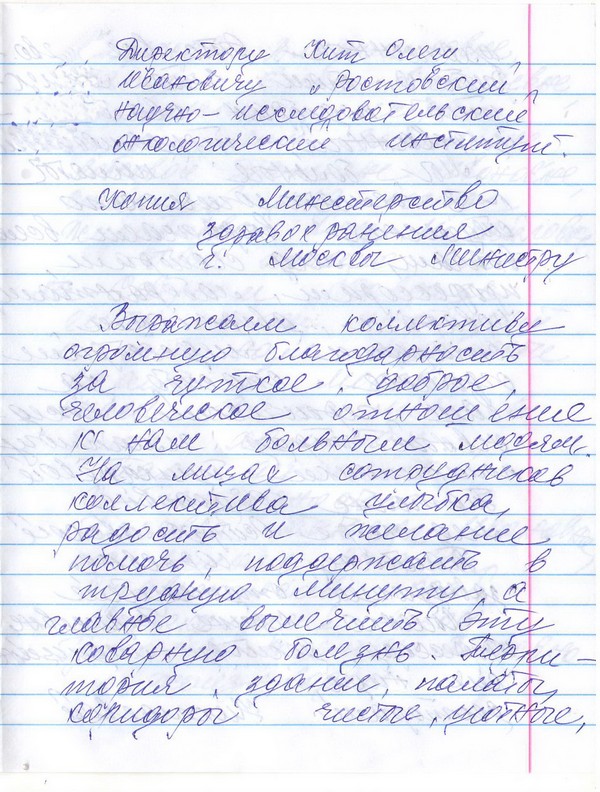 Директору Кит Олегу
Ивановичу „Ростовский
научно-исследовательский
онкологический институт.
Копия Министерство
здравоохранения
г. Москвы Министру
Выражаем коллективу
огромную благодарность
за чуткое, доброе,
человеческое отношение
к нам больным людям.
На лицах сотрудников
коллектива улыбка,
радость и желание
помочь, поддержать в
трудную минуту, а
главное вылечить эту
коварную болезнь. Терри-
тория, здание, палаты,
коридоры чистые, уютные,